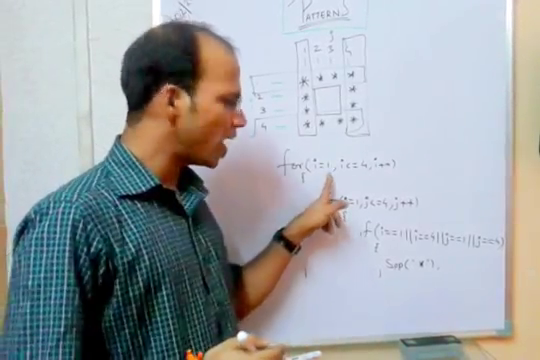 PATTERNS
j
1 2 3 4
1 1 1 1
* * * *
2 * *
3 * *
4 * * * *
for(i=1,i<=4,i++)
j=1,j<=4,j++)
if(i==1||i==4||j==1||j==4)
{
Sop('*'),